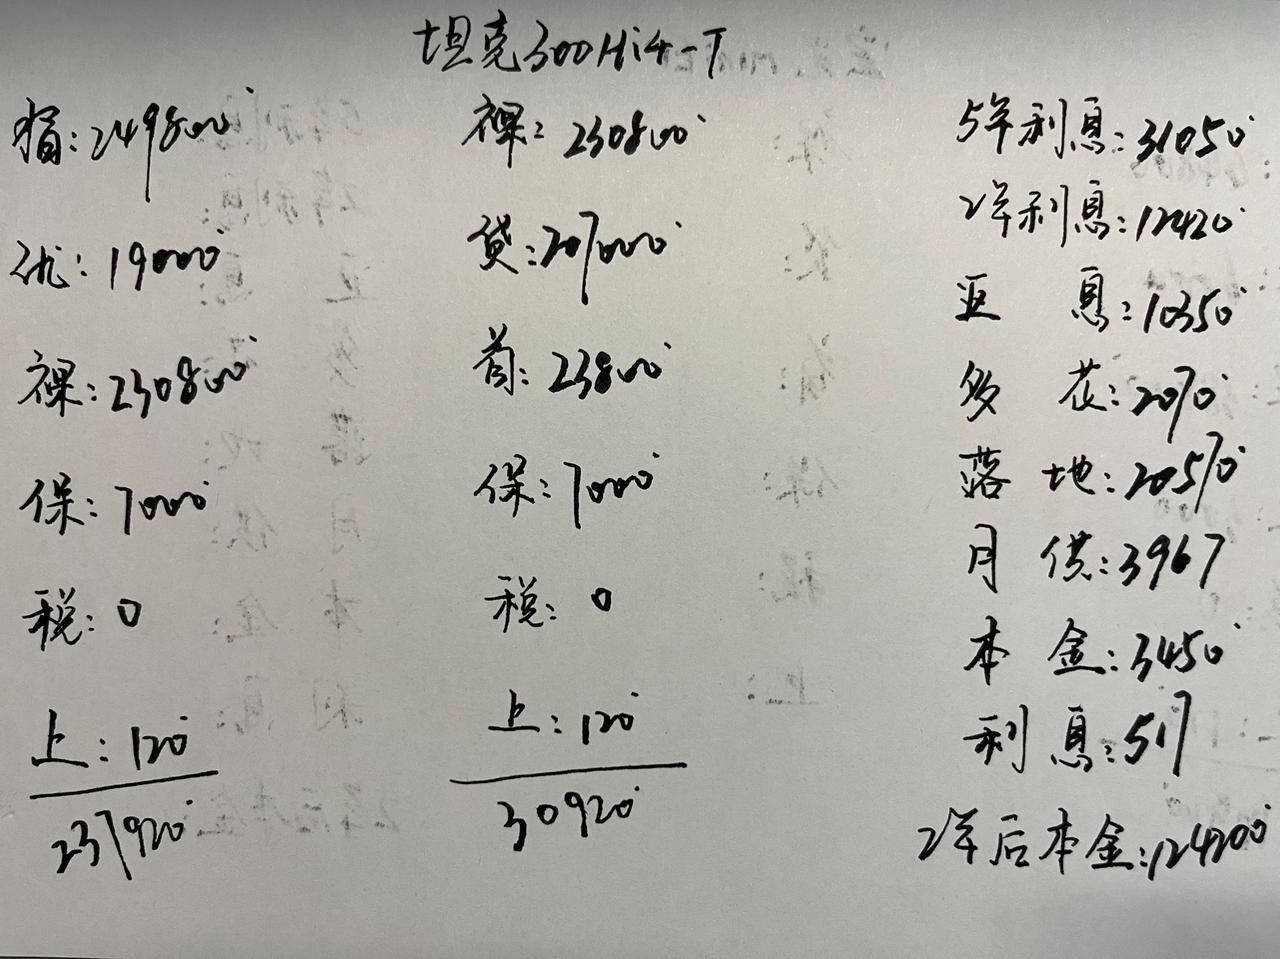 坦克300Hi4-T
指:249800
优:19000
裸:230800
保:7000
税:0
上:120
237920
裸:230800
贷:207000
首:23800
保:7000
税:0
上:120
30920
5年利息:31050
2年利息:12420
亚 息:10350
多 花:2070
落 地:20570
月 供:3967
本 金:3450
利 息:517
2年后本金:124200